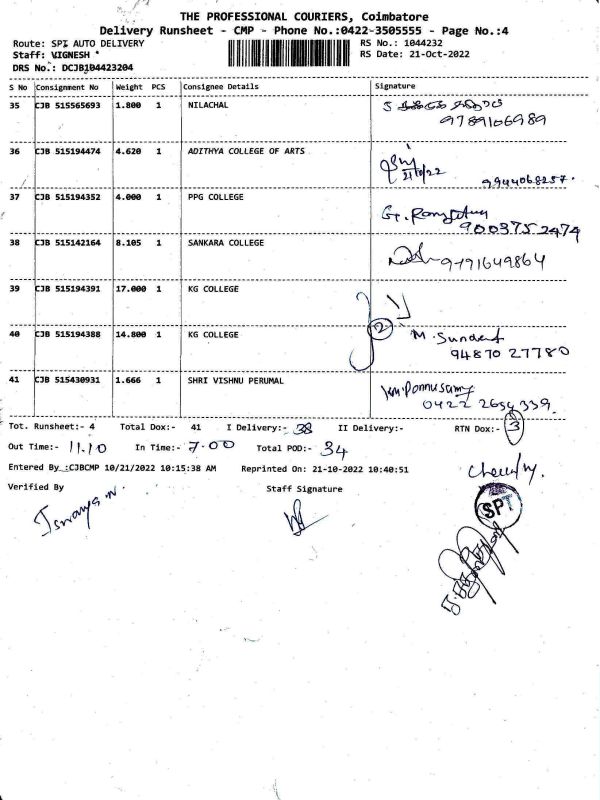 THE PROFESSIONAL COURIERS, Coimbatore
Delivery Runsheet - CMP - Phone No.:0422-3505555 - Page No.:4
Route: SPT AUTO DELIVERY RS No.: 1044232
Staff: VIGNESH RS Date: 21-Oct-2022
DRS No.: DCJB104423204
S No Consignment No Weight PCS Consignee Details Signature
35 CJB 515565693 1.800 1 NILACHAL
9789106989
36 CJB 515194474 4.620 1 ADITHYA COLLEGE OF ARTS
21/10/22 9944068257.
37 CJB 515194352 4.000 1 PPG COLLEGE
9003752474
38 CJB 515142164 8.105 1 SANKARA COLLEGE
9791649864
39 CJB 515194391 17.000 1 KG COLLEGE
40 CJB 515194388 14.800 1 KG COLLEGE 2 M. Sundar
94870 27780
41 CJB 515430931 1.666 1 SHRI VISHNU PERUMAL Ponnusamy
0422 2654 339.
Tot. Runsheet:- 4 Total Dox:- 41 I Delivery:- 38 II Delivery:- RTN Dox:- 3
Out Time:- 11.10 In Time:- 7.00 Total POD:- 34
Entered By :CJBCMP 10/21/2022 10:15:38 AM Reprinted On: 21-10-2022 10:40:51
Verified By Staff Signature
SPT